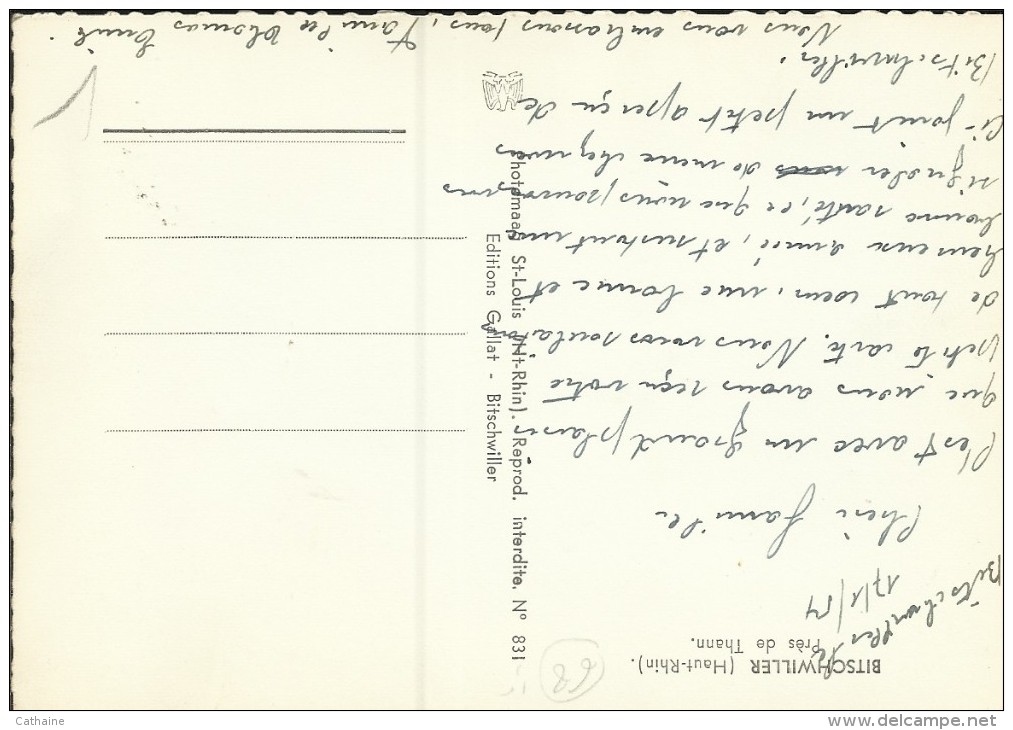 BITSCHWILLER (Haut-Rhin).
Près de Thann.
Bitschwiller le
17/1/54
Chère famille
C'est avec un grand plaisir
que nous avons reçu votre
petite carte. Nous vous souhaitons
de tout coeur, une bonne et
heureuse année, et surtout une
bonne santé, ce que nous pouvons
signaler de meme chez nous
Ci-joint un petit aperçu de
Bitschwiller.
Nous vous embrassons tous,
Famille Emile
Photomaag St-Louis (Ht-Rhin). Reprod. interdite. N° 831
Editions Gallat - Bitschwiller
68
1
Cathaine
delcampe.net